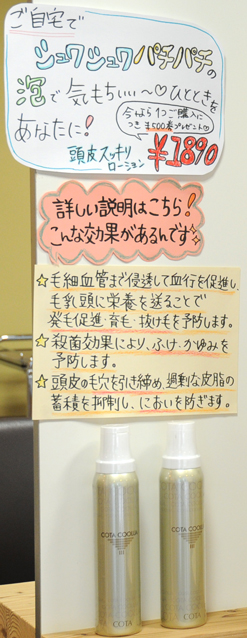 ご自宅で
シュワシュワパチパチの
泡で気もちいい〜♡ひとときを
あなたに!
今なら1つご購入に
つき¥500券プレゼント♡
頭皮スッキリ
ローション
¥1890
詳しい説明はこちら!
こんな効果があるんです☆
☆毛細血管まで浸透して血行を促進し、
毛乳頭に栄養を送ることで
発毛促進・育毛・抜け毛を予防します。
☆殺菌効果により、ふけ・かゆみを
予防します。
☆頭皮の毛穴を引き締め、過剰な皮脂の
蓄積を抑制し、においを防ぎます。
COTA COOLUR
COTA
COTA COOLUR
COTA